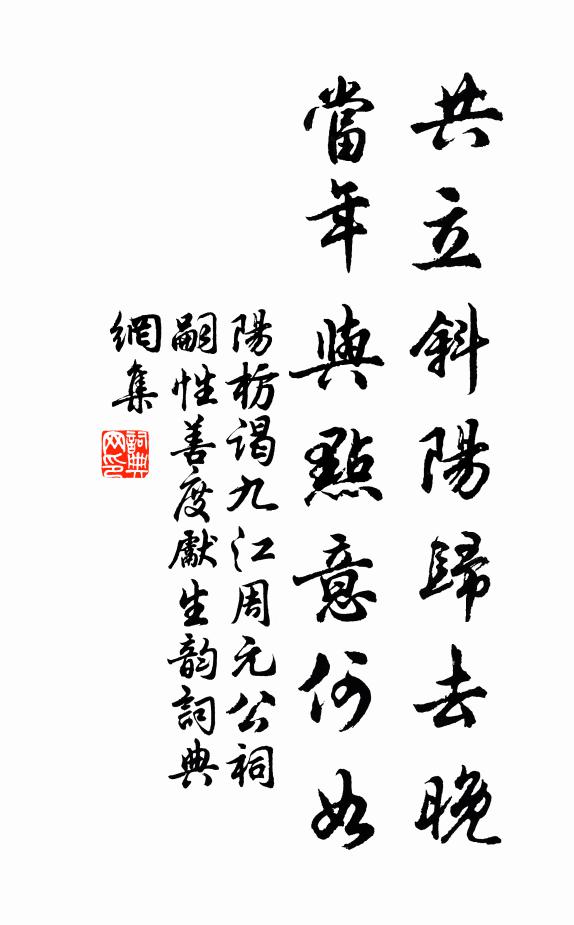 共立斜陽歸去晚
當年與點意何如
陽枋谒九江周元公祠
嗣性善度獻生韵詞典
網集
詞典
网印